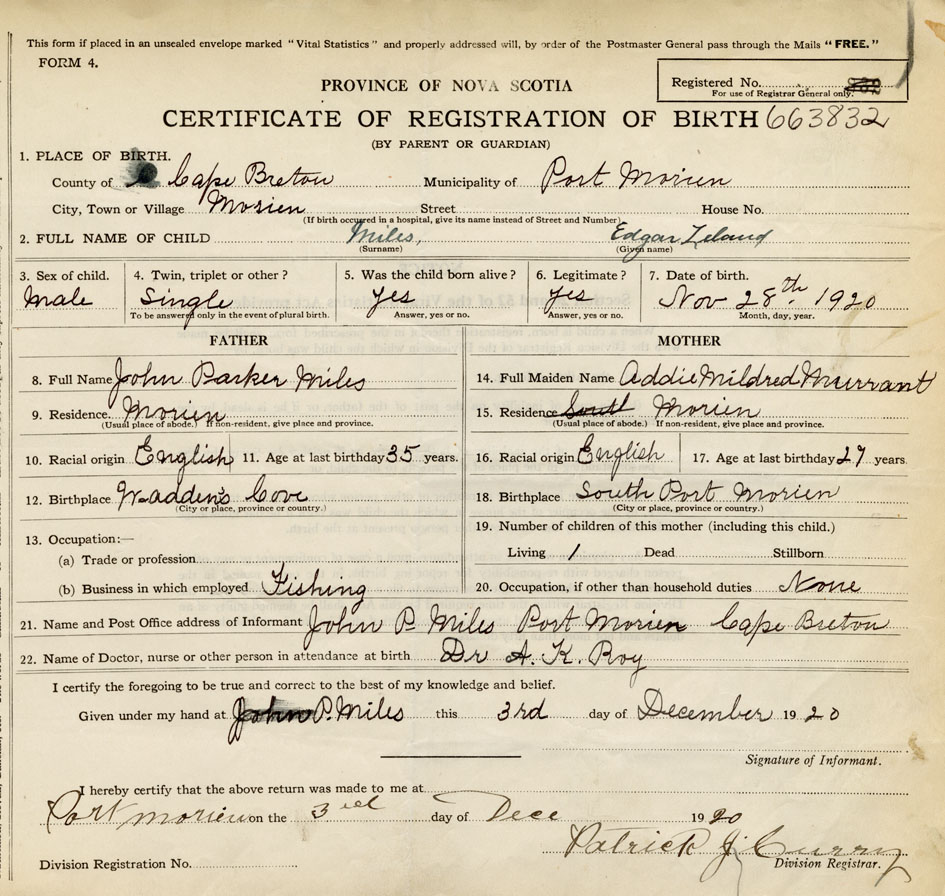 This form if placed in an unsealed envelope marked "Vital Statistics" and properly addressed will, by order of the Postmaster General pass through the Mails "FREE."
FORM 4.
PROVINCE OF NOVA SCOTIA
Registered No.
For use of Registrar General only.
CERTIFICATE OF REGISTRATION OF BIRTH 663832
(BY PARENT OR GUARDIAN)
1. PLACE OF BIRTH.
County of Cape Breton Municipality of Port Morien
City, Town or Village Morien Street House No.
(If birth occurred in a hospital, give its name instead of Street and Number)
2. FULL NAME OF CHILD Miles, Edgar Leland
(Surname) (Given name)
3. Sex of child. 4. Twin, triplet or other? 5. Was the child born alive? 6. Legitimate? 7. Date of birth.
Male Single yes yes Nov 28th 1920
To be answered only in the event of plural birth. Answer, yes or no. Answer, yes or no. Month, day, year.
FATHER MOTHER
8. Full Name John Parker Miles 14. Full Maiden Name Addie Mildred Murrant
9. Residence. Morien 15. Residence South Morien
(Usual place of abode.) If non-resident, give place and province. (Usual place of abode.) If non-resident, give place and province.
10. Racial origin English 11. Age at last birthday 35 years. 16. Racial origin English 17. Age at last birthday 27 years.
12. Birthplace Wadden's Cove 18. Birthplace South Port Morien
(City or place, province or country.) (City or place, province or country.)
13. Occupation:— 19. Number of children of this mother (including this child.)
(a) Trade or profession Living 1 Dead Stillborn
(b) Business in which employed Fishing 20. Occupation, if other than household duties None
21. Name and Post Office address of Informant John P. Miles Port Morien Cape Breton
22. Name of Doctor, nurse or other person in attendance at birth Dr A. K. Roy
I certify the foregoing to be true and correct to the best of my knowledge and belief.
Given under my hand at John P. Miles this 3rd day of December 1920
Signature of Informant.
I hereby certify that the above return was made to me at
Port Morien on the 3rd day of Dece 1920
Patrick J. Curry
Division Registration No. Division Registrar.